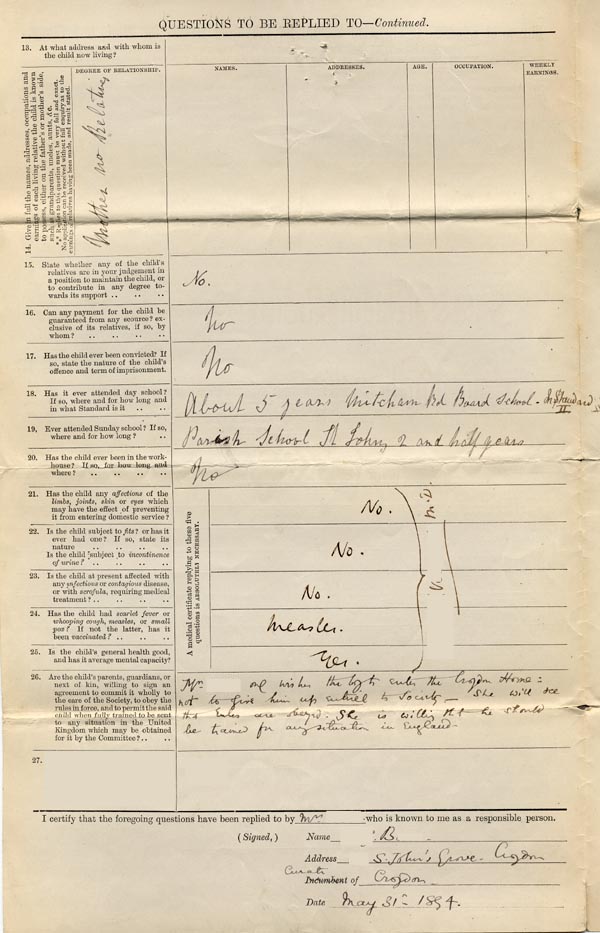 QUESTIONS TO BE REPLIED TO—Continued.
13. At what address and with whom is
the child now living?
14. Give in full the names, addresses, occupations and
earnings of each living relative the child is known
to possess, either on the father's or mother's side,
such as grandparents, uncles, aunts, &c.
*** Replies to this question must be very full and exact.
No application can be received without full enquiry as to the
relatives having been made, and result stated.
DEGREE OF RELATIONSHIP.
NAMES.
ADDRESSES.
AGE.
OCCUPATION.
WEEKLY
EARNINGS.
Mother no Relatives
15. State whether any of the child's
relatives are in your judgement in
a position to maintain the child, or
to contribute in any degree to-
wards its support .. .. ..
No.
16. Can any payment for the child be
guaranteed from any scource? ex-
clusive of its relatives, if so, by
whom? .. .. .. ..
No
17. Has the child ever been convicted? If
so, state the nature of the child's
offence and term of imprisonment.
No
18. Has it ever attended day school?
If so, where and for how long and
in what Standard is it .. ..
About 5 years Mitcham Rd Board School - In Standard
II
19. Ever attended Sunday school? If so,
where and for how long? ..
Parish School St Johns 2 and half years
20. Has the child ever been in the work-
house? If so, for how long and
where? .. .. .. ..
No
21. Has the child any affections of the
limbs, joints, skin or eyes which
may have the effect of preventing
it from entering domestic service?
No.
22. Is the child subject to fits? or has it
ever had one? If so, state its
nature .. .. .. ..
Is the child subject to incontinence
of urine? .. .. .. ..
No.
23. Is the child at present affected with
any infectious or contagious disease,
or with scrofula, requiring medical
treatment? .. .. .. ..
No.
24. Has the child had scarlet fever or
whooping cough, measles, or small
pox? If not the latter, has it
been vaccinated? .. .. ..
Measles.
25. Is the child's general health good,
and has it average mental capacity?
Yes.
A medical certificate replying to these five
questions is ABSOLUTELY NECESSARY.
M.D.
26. Are the child's parents, guardians, or
next of kin, willing to sign an
agreement to commit it wholly to
the care of the Society, to obey the
rules in force, and to permit the said
child when fully trained to be sent
to any situation in the United
Kingdom which may be obtained
for it by the Committee? .. ..
Mrs only wishes the boy to enter the Croydon Home =
not to give him up entirely to Society - She will see
the rules are obeyed. She is willing that he should
be trained for any situation in England -
27.
I certify that the foregoing questions have been replied to by Mrs who is known to me as a responsible person.
(Signed,) Name B.
Address S. John's Grove - Croydon
Curate
Incumbent of Croydon
Date May 31st 1894.